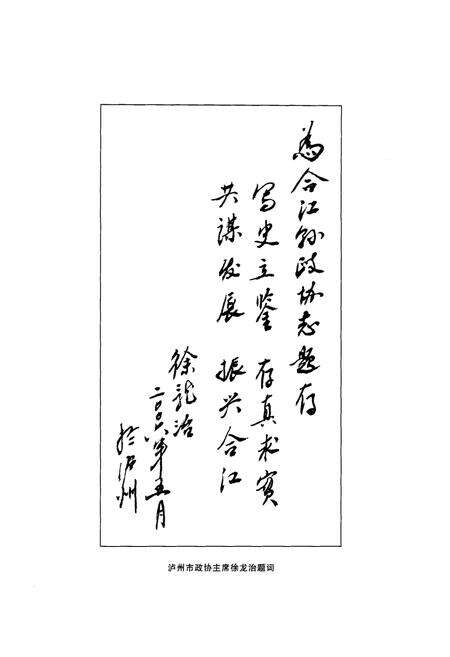 为合江县政协志题存
写史立鉴 存真求实
共谋发展 振兴合江
徐龙治
二〇〇六年五月
于泸州
泸州市政协主席徐龙治题词